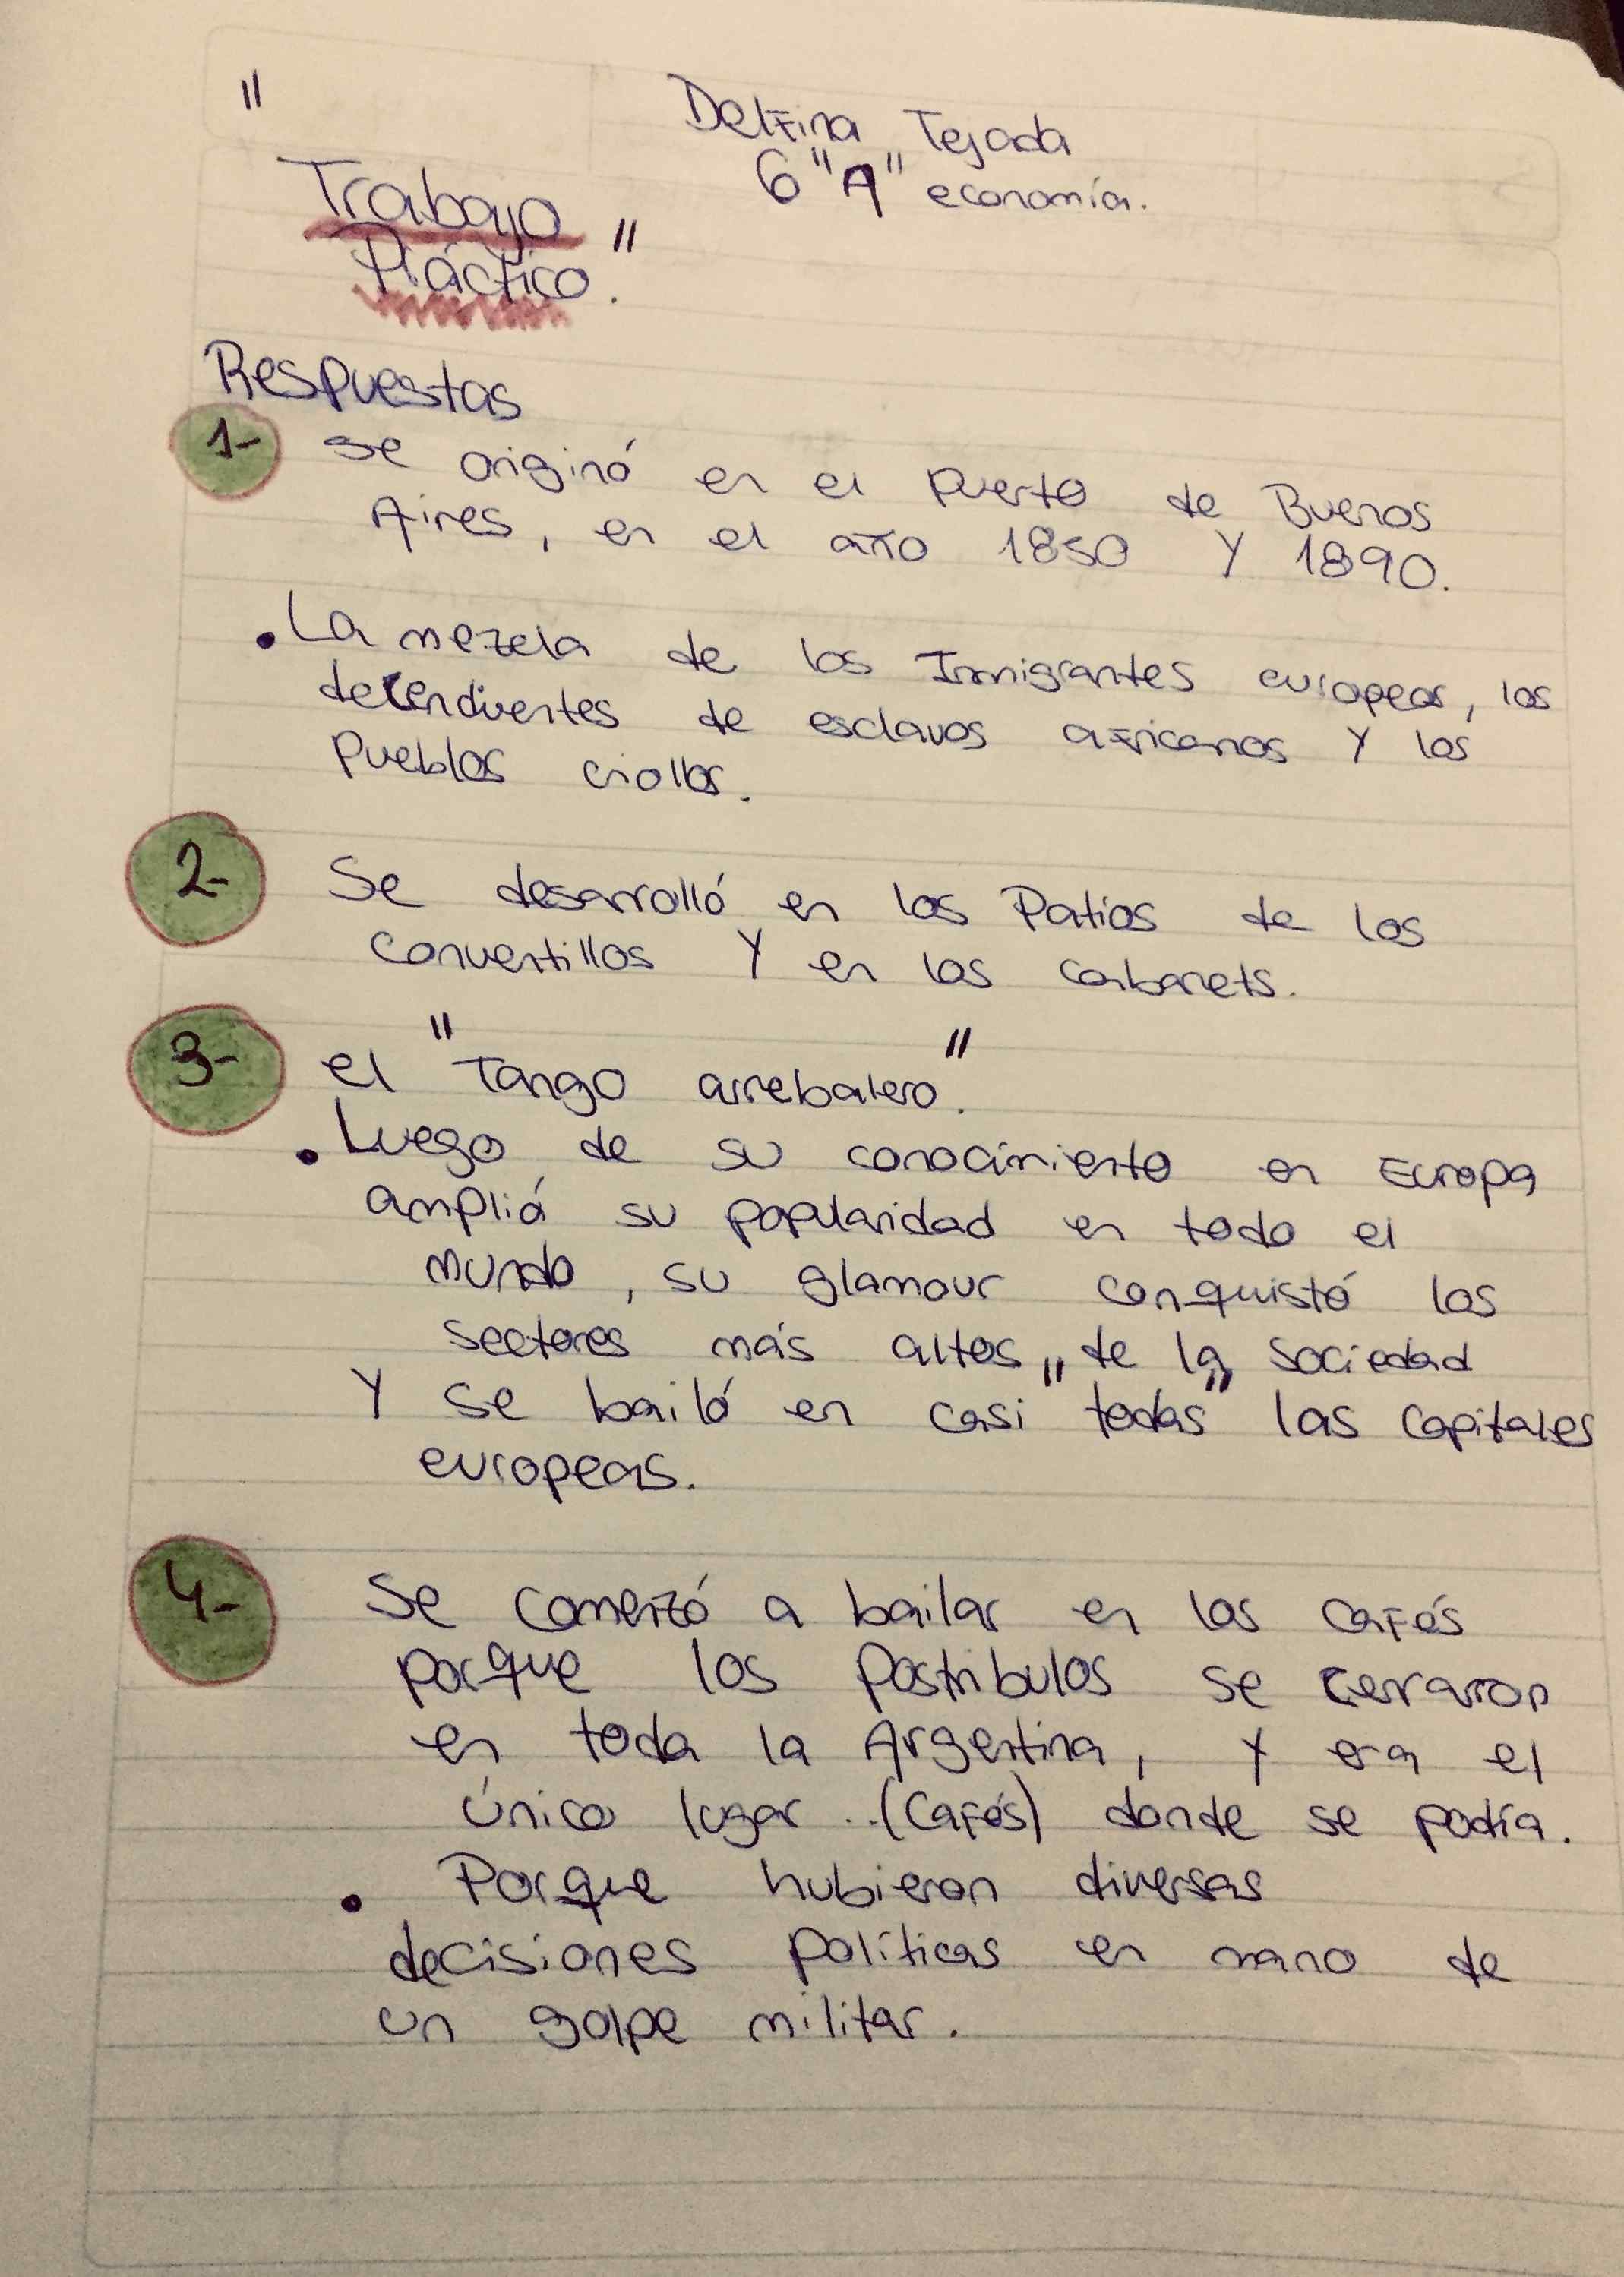 "
Delfina Tejada
6 "A" economía.
Trabajo "
Práctico.
Respuestas
1- se originó en el puerto de Buenos
Aires, en el año 1850 y 1890.
• La mezcla de los Inmigrantes europeos, los
decendientes de esclavos africanos y los
pueblos criollos.
2- Se desarrolló en los Patios de los
conventillos y en los cabarets.
3- el "Tango arrebalero".
• Luego de su conocimiento en Europa
amplió su popularidad en todo el
mundo, su glamour conquistó los
sectores más altos de la sociedad
y se bailó en casi "todas" las capitales
europeas.
4- Se comenzó a bailar en los cafés
porque los postribulos se cerraron
en toda la Argentina, y era el
único lugar (cafés) donde se podía.
• Porque hubieron diversas
decisiones políticas en mano de
un golpe militar.